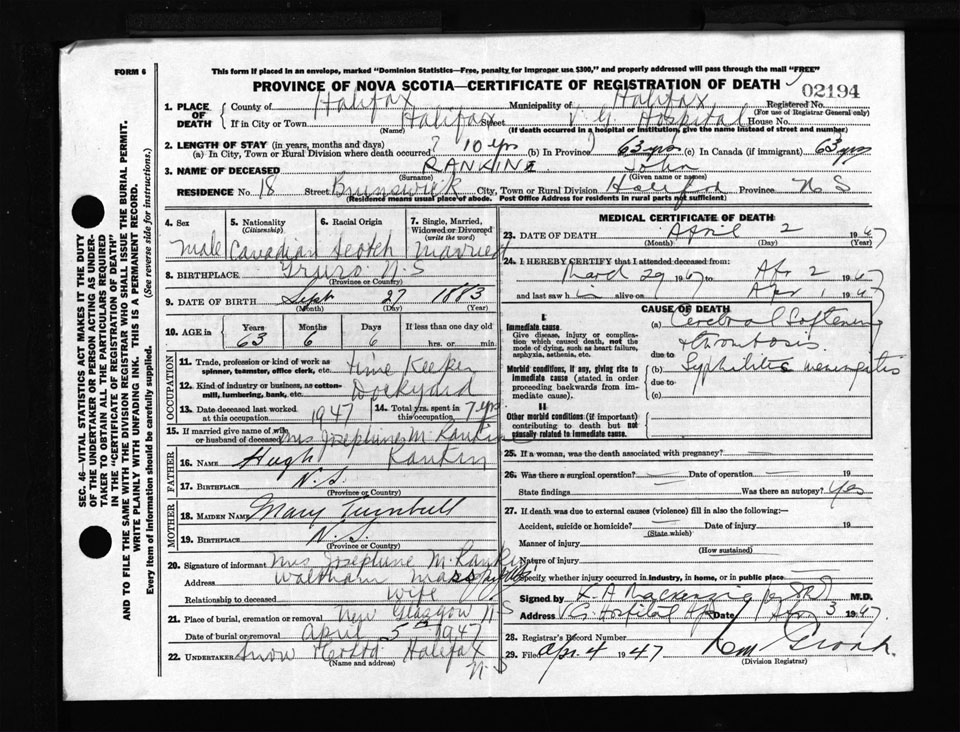 FORM 6
This form if placed in an envelope, marked "Dominion Statistics—Free, penalty for improper use $300," and properly addressed will pass through the mail "FREE"
PROVINCE OF NOVA SCOTIA—CERTIFICATE OF REGISTRATION OF DEATH
02194
1. PLACE OF DEATH County of Halifax Municipality of Halifax Registered No.
(For use of Registrar General only)
If in City or Town Halifax Street V G Hospital House No.
(Name) (If death occurred in a hospital or institution, give the name instead of street and number)
2. LENGTH OF STAY (in years, months and days)
(a) In City, Town or Rural Division where death occurred? 10 yrs (b) In Province? 63 yrs (c) In Canada (if immigrant) 63 yrs
3. NAME OF DECEASED RANKINE John
(Surname) (Given name or names)
RESIDENCE No. 18 Street Brunswick City, Town or Rural Division Halifax Province N S
(Residence means usual place of abode. Post Office Address for residents in rural parts not sufficient)
4. Sex 5. Nationality (Citizenship) 6. Racial Origin 7. Single, Married, Widowed or Divorced (write the word)
Male Canadian Scotch Married
8. BIRTHPLACE Truro N.S
(Province or Country)
9. DATE OF BIRTH Sept 27 1883
(Month) (Day) (Year)
10. AGE in Years Months Days If less than one day old
63 6 6 hrs. or min.
OCCUPATION
11. Trade, profession or kind of work as spinner, teamster, office clerk, etc. time Keeper
12. Kind of industry or business, as cotton-mill, lumbering, bank, etc. Dockyard
13. Date deceased last worked at this occupation 1947 14. Total yrs. spent in this occupation 7 yrs.
15. If married give name of wife or husband of deceased Mrs Josephine M. Rankin
FATHER
16. NAME Hugh Rankin
17. BIRTHPLACE N.S.
(Province or Country)
MOTHER
18. MAIDEN NAME Mary Turnbull
19. BIRTHPLACE N.S.
(Province or Country)
20. Signature of informant Mrs Josephine M. Rankin
Address Waltham mass
Relationship to deceased wife
21. Place of burial, cremation or removal New Glasgow N S
Date of burial or removal April 5th 1947
22. UNDERTAKER Snow Halifax
(Name and address) N-S
MEDICAL CERTIFICATE OF DEATH
23. DATE OF DEATH April 2 1947
(Month) (Day) (Year)
24. I HEREBY CERTIFY that I attended deceased from:
March 29 1947 to Apr 2 1947
and last saw h im alive on Apr 1 1947
CAUSE OF DEATH
I.
Immediate cause.
Give disease, injury or complication which caused death, not the mode of dying, such as heart failure, asphyxia, asthenia, etc.
Morbid conditions, if any, giving rise to immediate cause (stated in order proceeding backwards from immediate cause).
II
Other morbid conditions (if important) contributing to death but not causally related to immediate cause.
(a) Cerebral Softening
thrombosis.
due to
(b) Syphilitic meningitis
due to
(c)
25. If a woman, was the death associated with pregnancy?
26. Was there a surgical operation? Date of operation 19
State findings Was there an autopsy? Yes
27. If death was due to external causes (violence) fill in also the following:
Accident, suicide or homicide? Date of injury 19
(State which)
Manner of injury
(How sustained)
Nature of injury
Specify whether injury occurred in industry, in home, or in public place
Signed by K. A Mackenzie M.D.
Address V G Hospital Date Apr 3 1947
28. Registrar's Record Number
29. Filed Apr. 4 1947
(Division Registrar)
SEC. 46—VITAL STATISTICS ACT MAKES IT THE DUTY
OF THE UNDERTAKER OR PERSON ACTING AS UNDER-
TAKER TO OBTAIN ALL THE PARTICULARS REQUIRED
IN THE "CERTIFICATE OF REGISTRATION OF DEATH"
AND TO FILE THE SAME WITH THE DIVISION REGISTRAR WHO SHALL ISSUE THE BURIAL PERMIT.
WRITE PLAINLY WITH UNFADING INK. THIS IS A PERMANENT RECORD.
Every item of information should be carefully supplied. (See reverse side for instructions.)